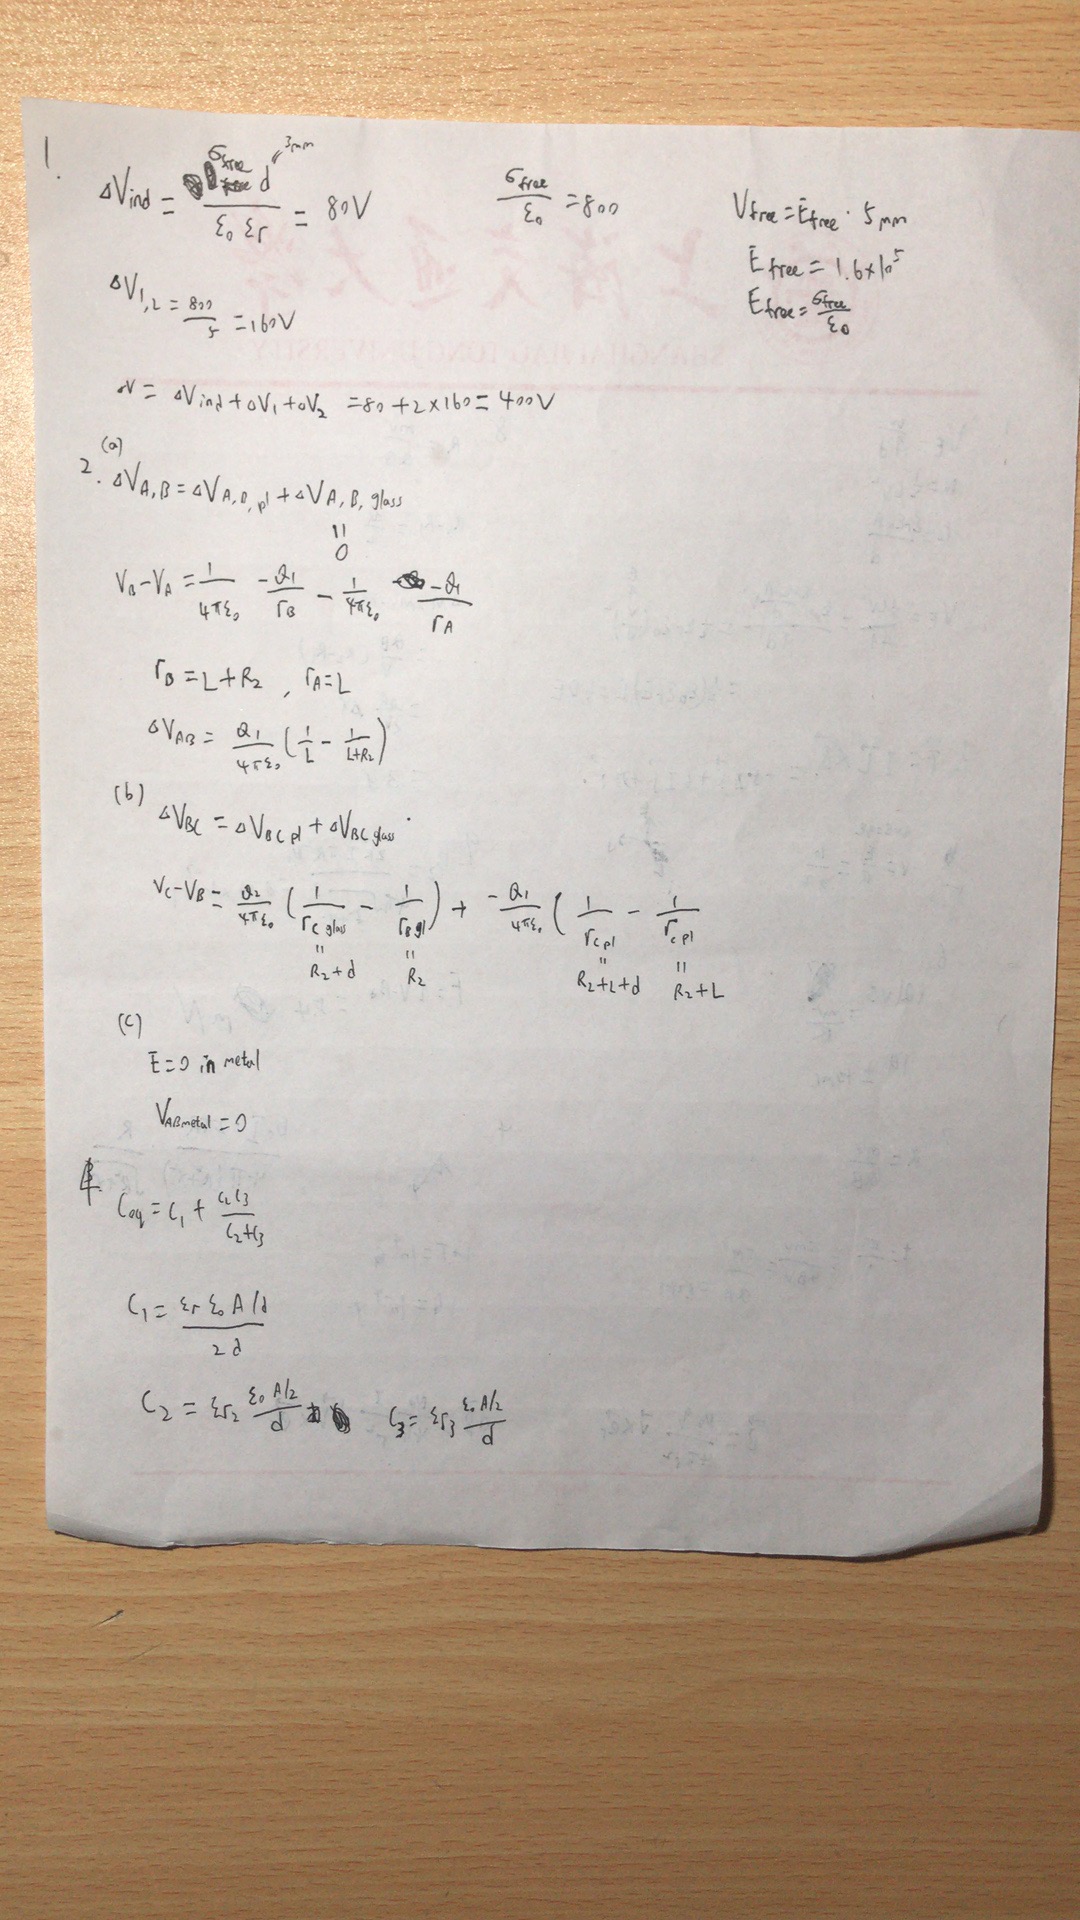 1.
ΔVind = σfree d / ε0 εr = 80V
3mm
σfree / ε0 = 800
Vfree = Efree · 5mm
Efree = 1.6×10^5
Efree = σfree / ε0
ΔV1,2 = 800 / 5 = 160V
ΔV = ΔVind + ΔV1 + ΔV2 = 80 + 2×160 = 400V
2. (a)
ΔVA,B = ΔVA,B,pl + ΔVA,B,glass
||
0
VB - VA = 1/4πε0 -Q1/rB - 1/4πε0 -Q1/rA
rB = L+R2 , rA = L
ΔVAB = Q1/4πε0 (1/L - 1/L+R2)
(b)
ΔVBC = ΔVBC pl + ΔVBC glass
VC - VB = Q2/4πε0 (1/rC glass - 1/rB gl) + -Q1/4πε0 (1/rC pl - 1/rC pl
|| || || ||
R2+d R2 R2+L+d R2+L
(c)
E=0 in metal
VAB metal = 0
4.
Ceq = C1 + C2C3 / C2+C3
C1 = εr ε0 A/d / 2d
C2 = εr2 ε0 A/2 / d C3 = εr3 ε0 A/2 / d